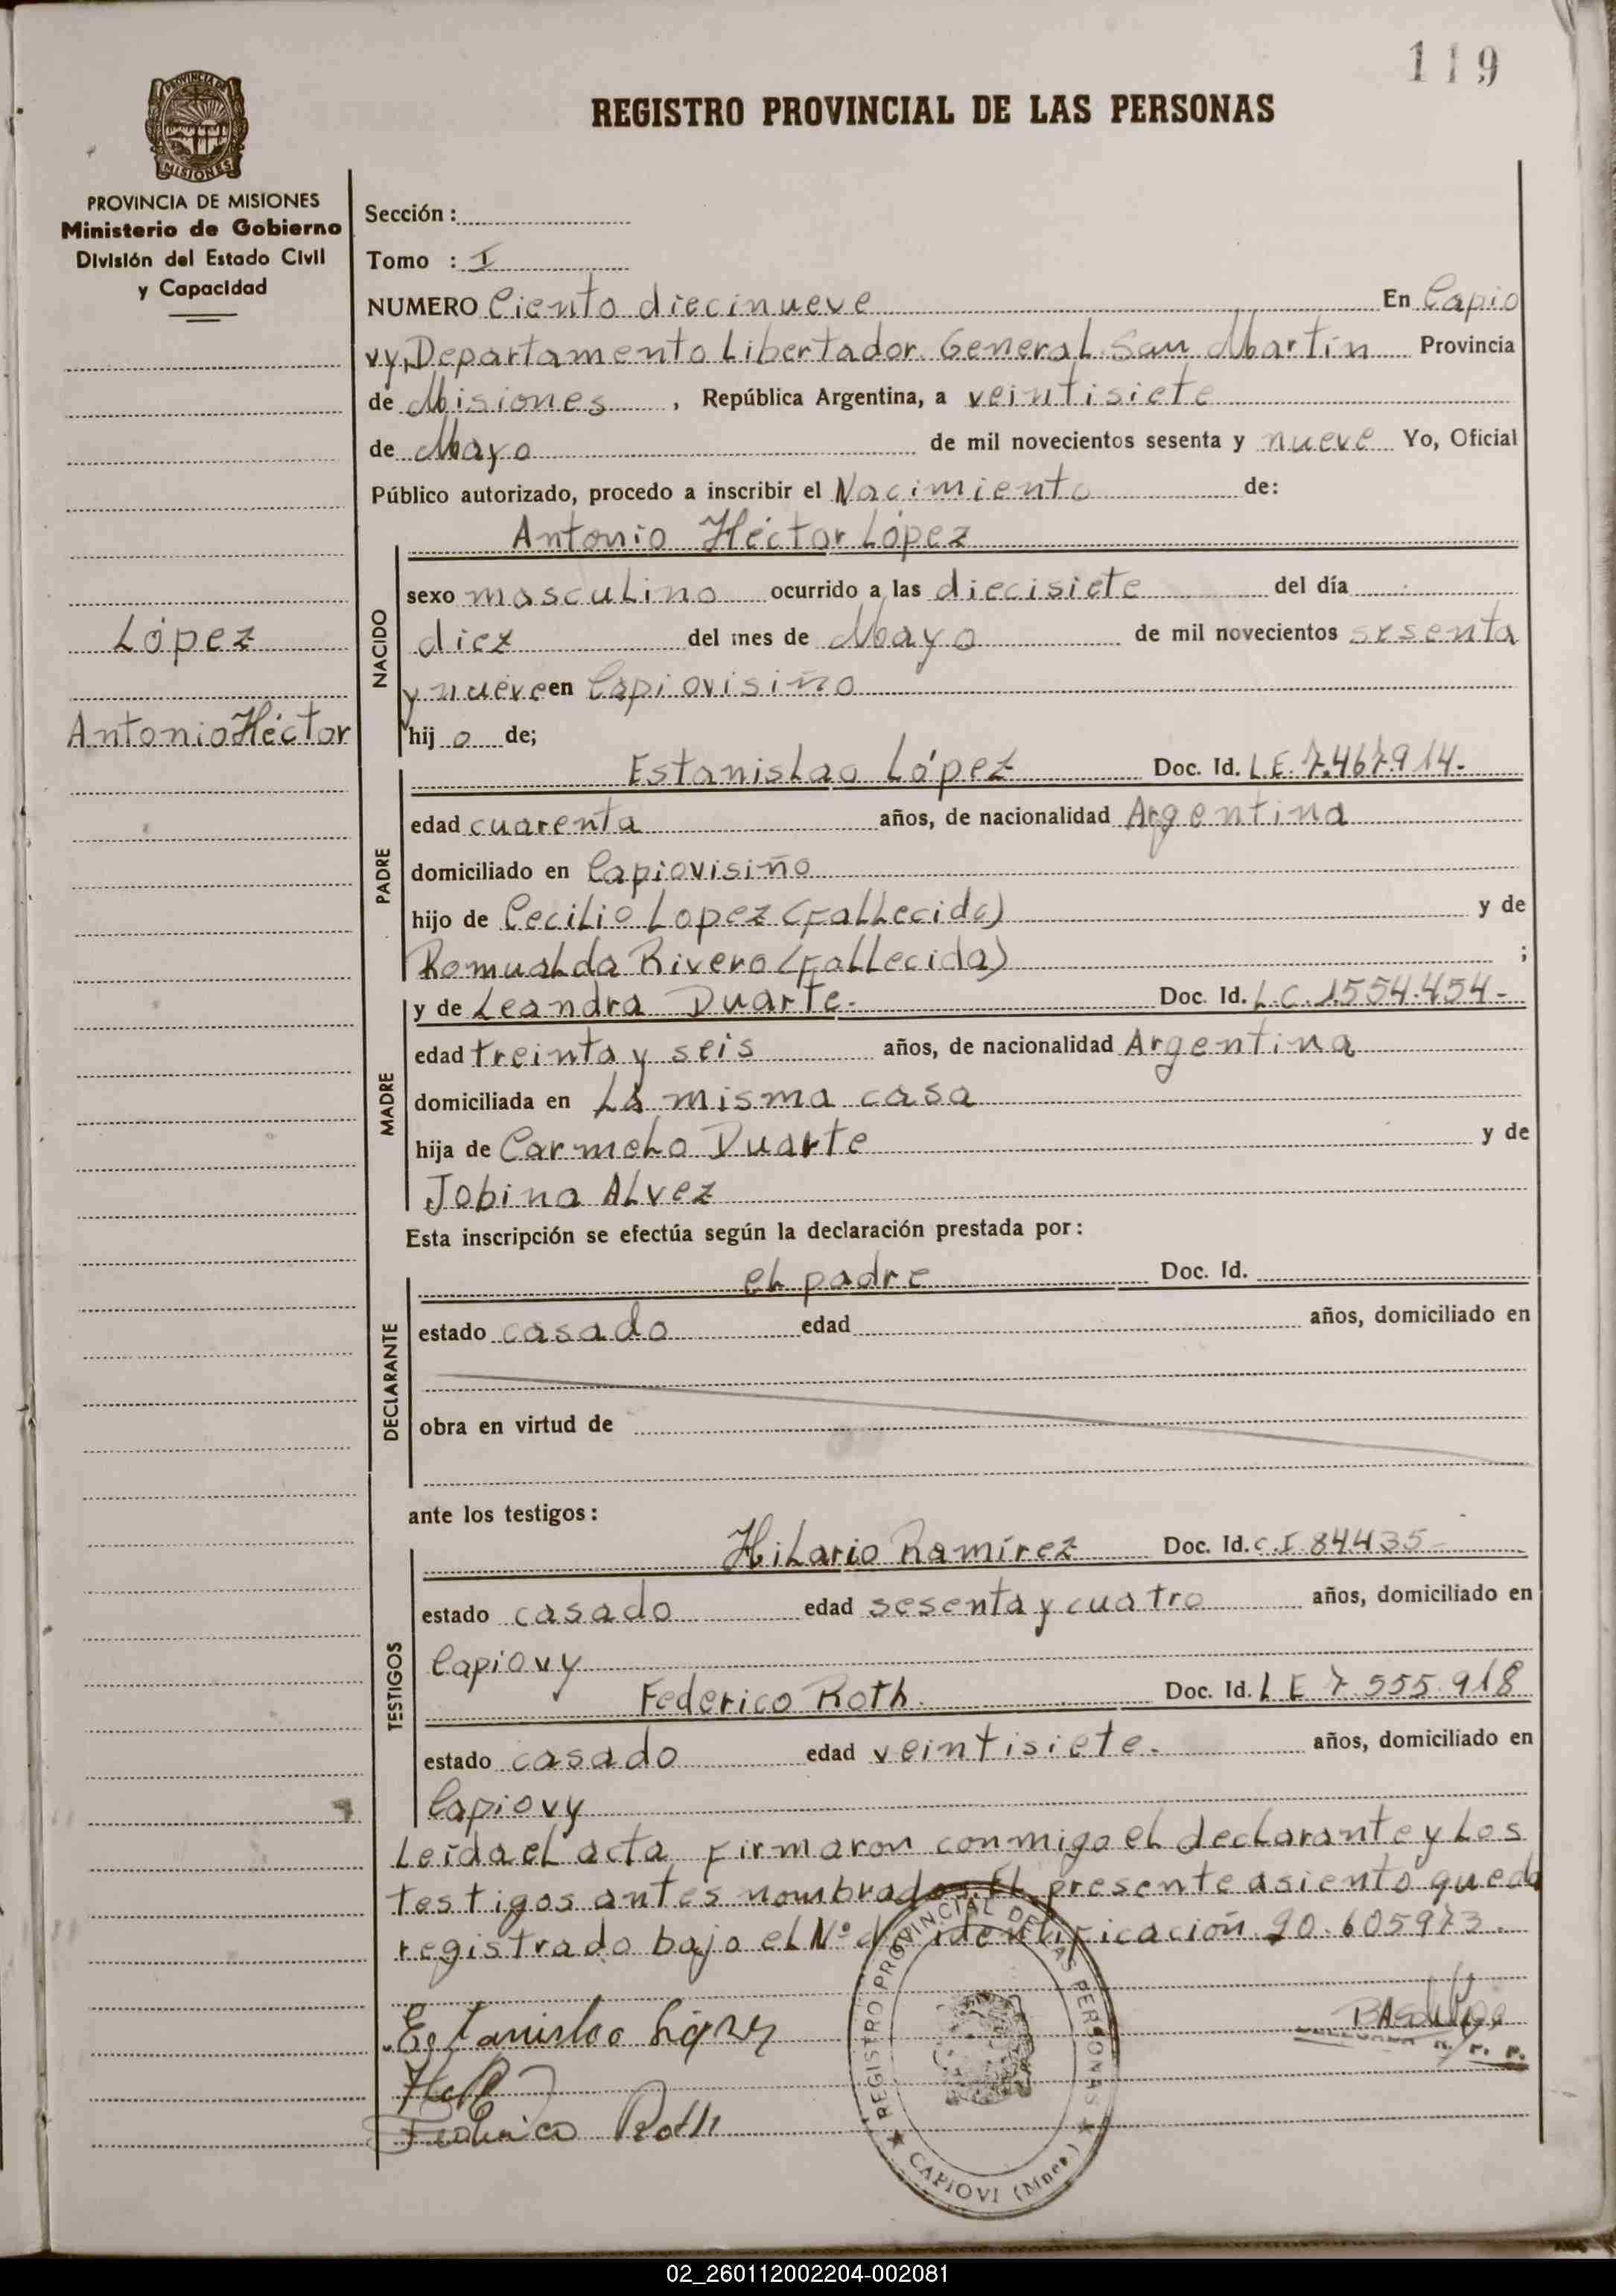 119
REGISTRO PROVINCIAL DE LAS PERSONAS
PROVINCIA DE MISIONES
MISIONES
PROVINCIA DE MISIONES
Ministerio de Gobierno
División del Estado Civil
y Capacidad
López
Antonio Héctor
Sección :
Tomo : I
NUMERO Ciento diecinueve En Capio
vy, Departamento Libertador General San Martín Provincia
de Misiones, República Argentina, a veintisiete
de Mayo de mil novecientos sesenta y nueve Yo, Oficial
Público autorizado, procedo a inscribir el Nacimiento de:
NACIDO
Antonio Héctor López
sexo masculino ocurrido a las diecisiete del día
diez del mes de Mayo de mil novecientos sesenta
y nueve en Capiovisiño
hijo de;
PADRE
Estanislao López Doc. Id. L.E. 7.467.914.-
edad cuarenta años, de nacionalidad Argentina
domiciliado en Capiovisiño
hijo de Cecilio Lopez (Fallecido) y de
Romualda Rivero (Fallecida) ;
MADRE
y de Leandra Duarte.- Doc. Id. L.C. 1.554.454-
edad treinta y seis años, de nacionalidad Argentina
domiciliada en La misma casa
hija de Carmelo Duarte y de
Jobina Alvez
Esta inscripción se efectúa según la declaración prestada por :
DECLARANTE
el padre Doc. Id.
estado casado edad años, domiciliado en
obra en virtud de
ante los testigos :
TESTIGOS
Hilario Ramírez Doc. Id. C.I. 84435-
estado casado edad sesenta y cuatro años, domiciliado en
Capiovy
Federico Roth. Doc. Id. L E 7.555.918
estado casado edad veintisiete.- años, domiciliado en
Capiovy
Leída el acta, firmaron conmigo el declarante y los
testigos antes nombrados. El presente asiento queda
registrado bajo el Nº de identificación 20.605973.
Estanislao López
Federico Roth
REGISTRO PROVINCIAL DE LAS PERSONAS
CAPIOVI (Mnes.)
02_260112002204-002081